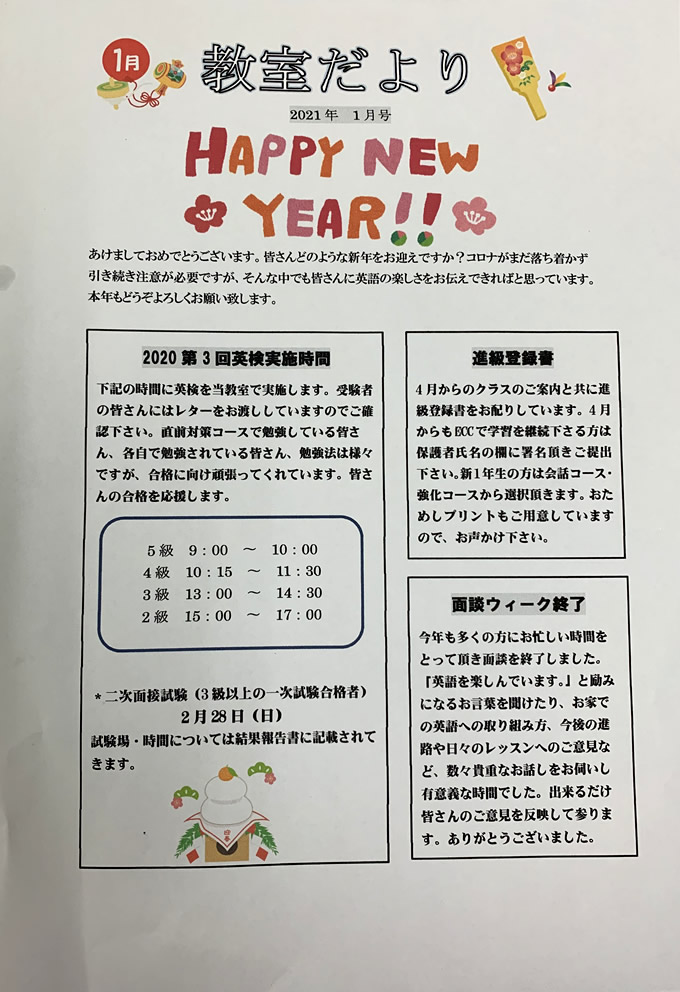 1月
教室だより
2021年 1月号
HAPPY NEW
YEAR!!
あけましておめでとうございます。皆さんどのような新年をお迎えですか？コロナがまだ落ち着かず
引き続き注意が必要ですが、そんな中でも皆さんに英語の楽しさをお伝えできればと思っています。
本年もどうぞよろしくお願い致します。
2020 第3回英検実施時間
下記の時間に英検を当教室で実施します。受験者
の皆さんにはレターをお渡ししていますのでご確
認下さい。直前対策コースで勉強している皆さ
ん、各自で勉強されている皆さん、勉強法は様々
ですが、合格に向け頑張ってくれています。皆さ
んの合格を応援します。
5級 9：00 ～ 10：00
4級 10：15 ～ 11：30
3級 13：00 ～ 14：30
2級 15：00 ～ 17：00
*二次面接試験（3級以上の一次試験合格者）
2月28日（日）
試験場・時間については結果報告書に記載されて
きます。
進級登録書
4月からのクラスのご案内と共に進
級登録書をお配りしています。4月
からもECCで学習を継続下さる方は
保護者氏名の欄に署名頂きご提出
下さい。新1年生の方は会話コース・
強化コースから選択頂きます。おた
めしプリントもご用意しています
ので、お声かけ下さい。
面談ウィーク終了
今年も多くの方にお忙しい時間を
とって頂き面談を終了しました。
『英語を楽しんでいます。』と励み
になるお言葉を聞けたり、お家で
の英語への取り組み方、今後の進
路や日々のレッスンへのご意見な
ど、数々貴重なお話しをお伺いし
有意義な時間でした。出来るだけ
皆さんのご意見を反映して参りま
す。ありがとうございました。